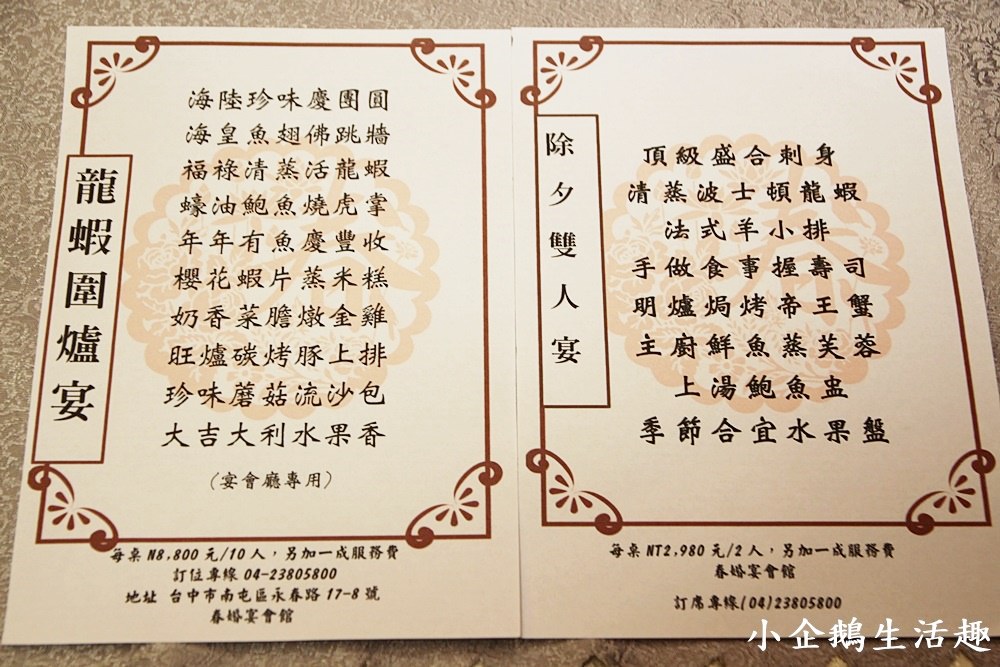 龍蝦圍爐宴
海陸珍味慶團圓
海皇魚翅佛跳牆
福祿清蒸活龍蝦
蠔油鮑魚燒虎掌
年年有魚慶豐收
櫻花蝦片蒸米糕
奶香菜膽燉金雞
旺爐碳烤豚上排
珍味蘑菇流沙包
大吉大利水果香
(宴會廳專用)
每桌 N8,800 元/10 人，另加一成服務費
訂位專線 04-23805800
地址 台中市南屯區永春路 17-8 號
春婚宴會館
除夕雙人宴
頂級盛合刺身
清蒸波士頓龍蝦
法式羊小排
手做食事握壽司
明爐焗烤帝王蟹
主廚鮮魚蒸芙蓉
上湯鮑魚盅
季節合宜水果盤
每桌 NT2,980 元/2 人，另加一成服務費
春婚宴會館
訂席專線(04)23805800
小企鵝生活趣